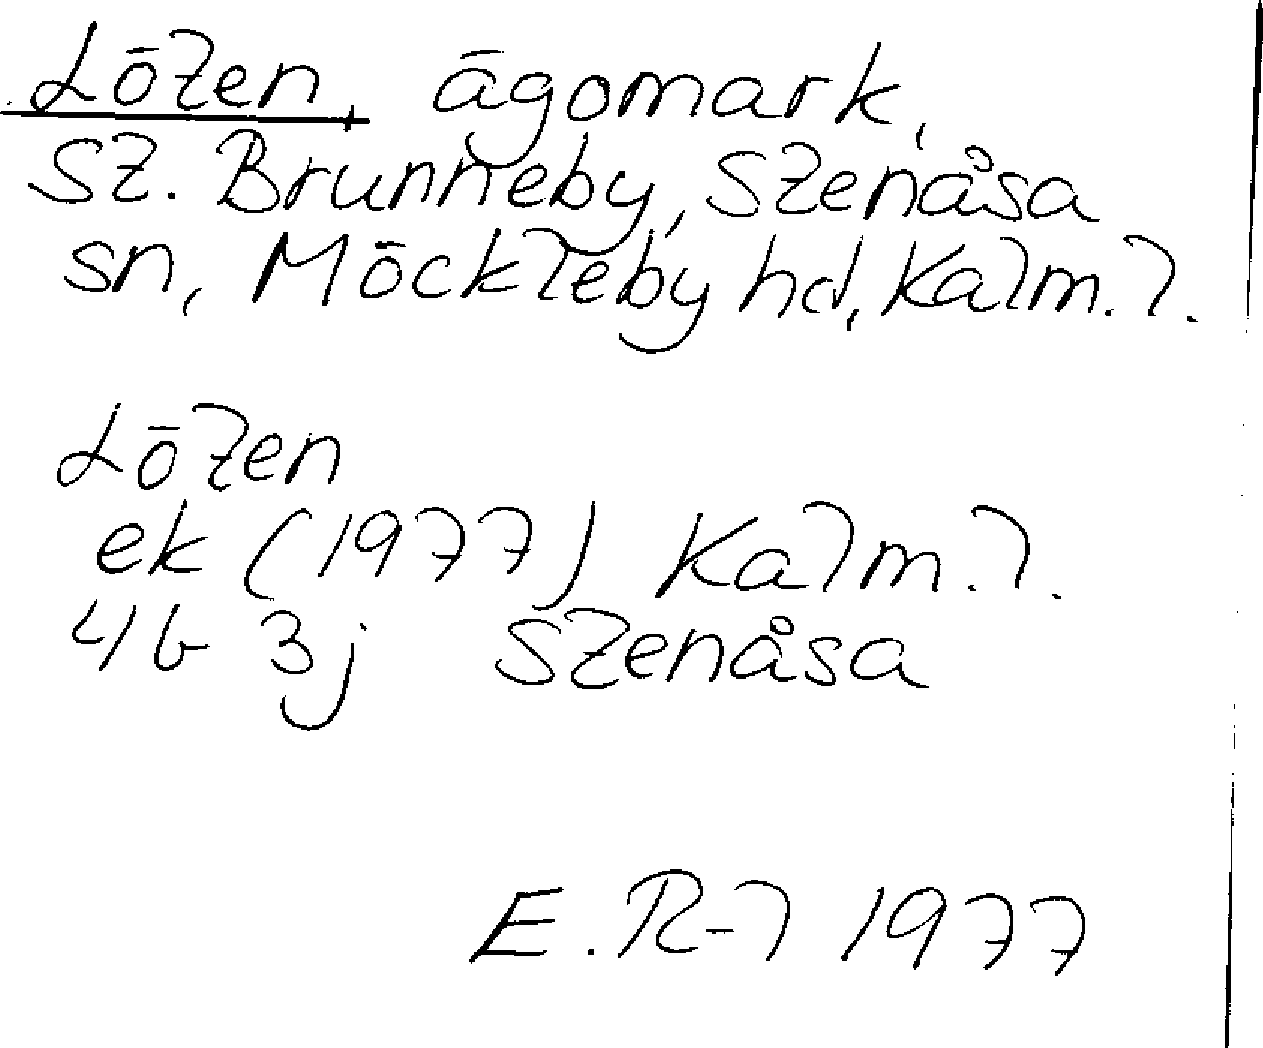 Löten, ägomark,
St. Brunneby, Stenåsa
sn, Möckleby hd, Kalm. l.
Löten
ek (1977) Kalm. l.
4G 3j Stenåsa
E. R-l 1977